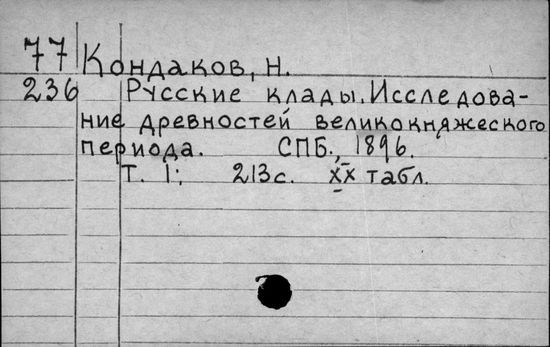 77 Кондаков, Н.
236 Русские клады. Исследова-
ние древностей великокняжеского
периода. СПБ., 1896.
Т. I: 213с. XX табл.